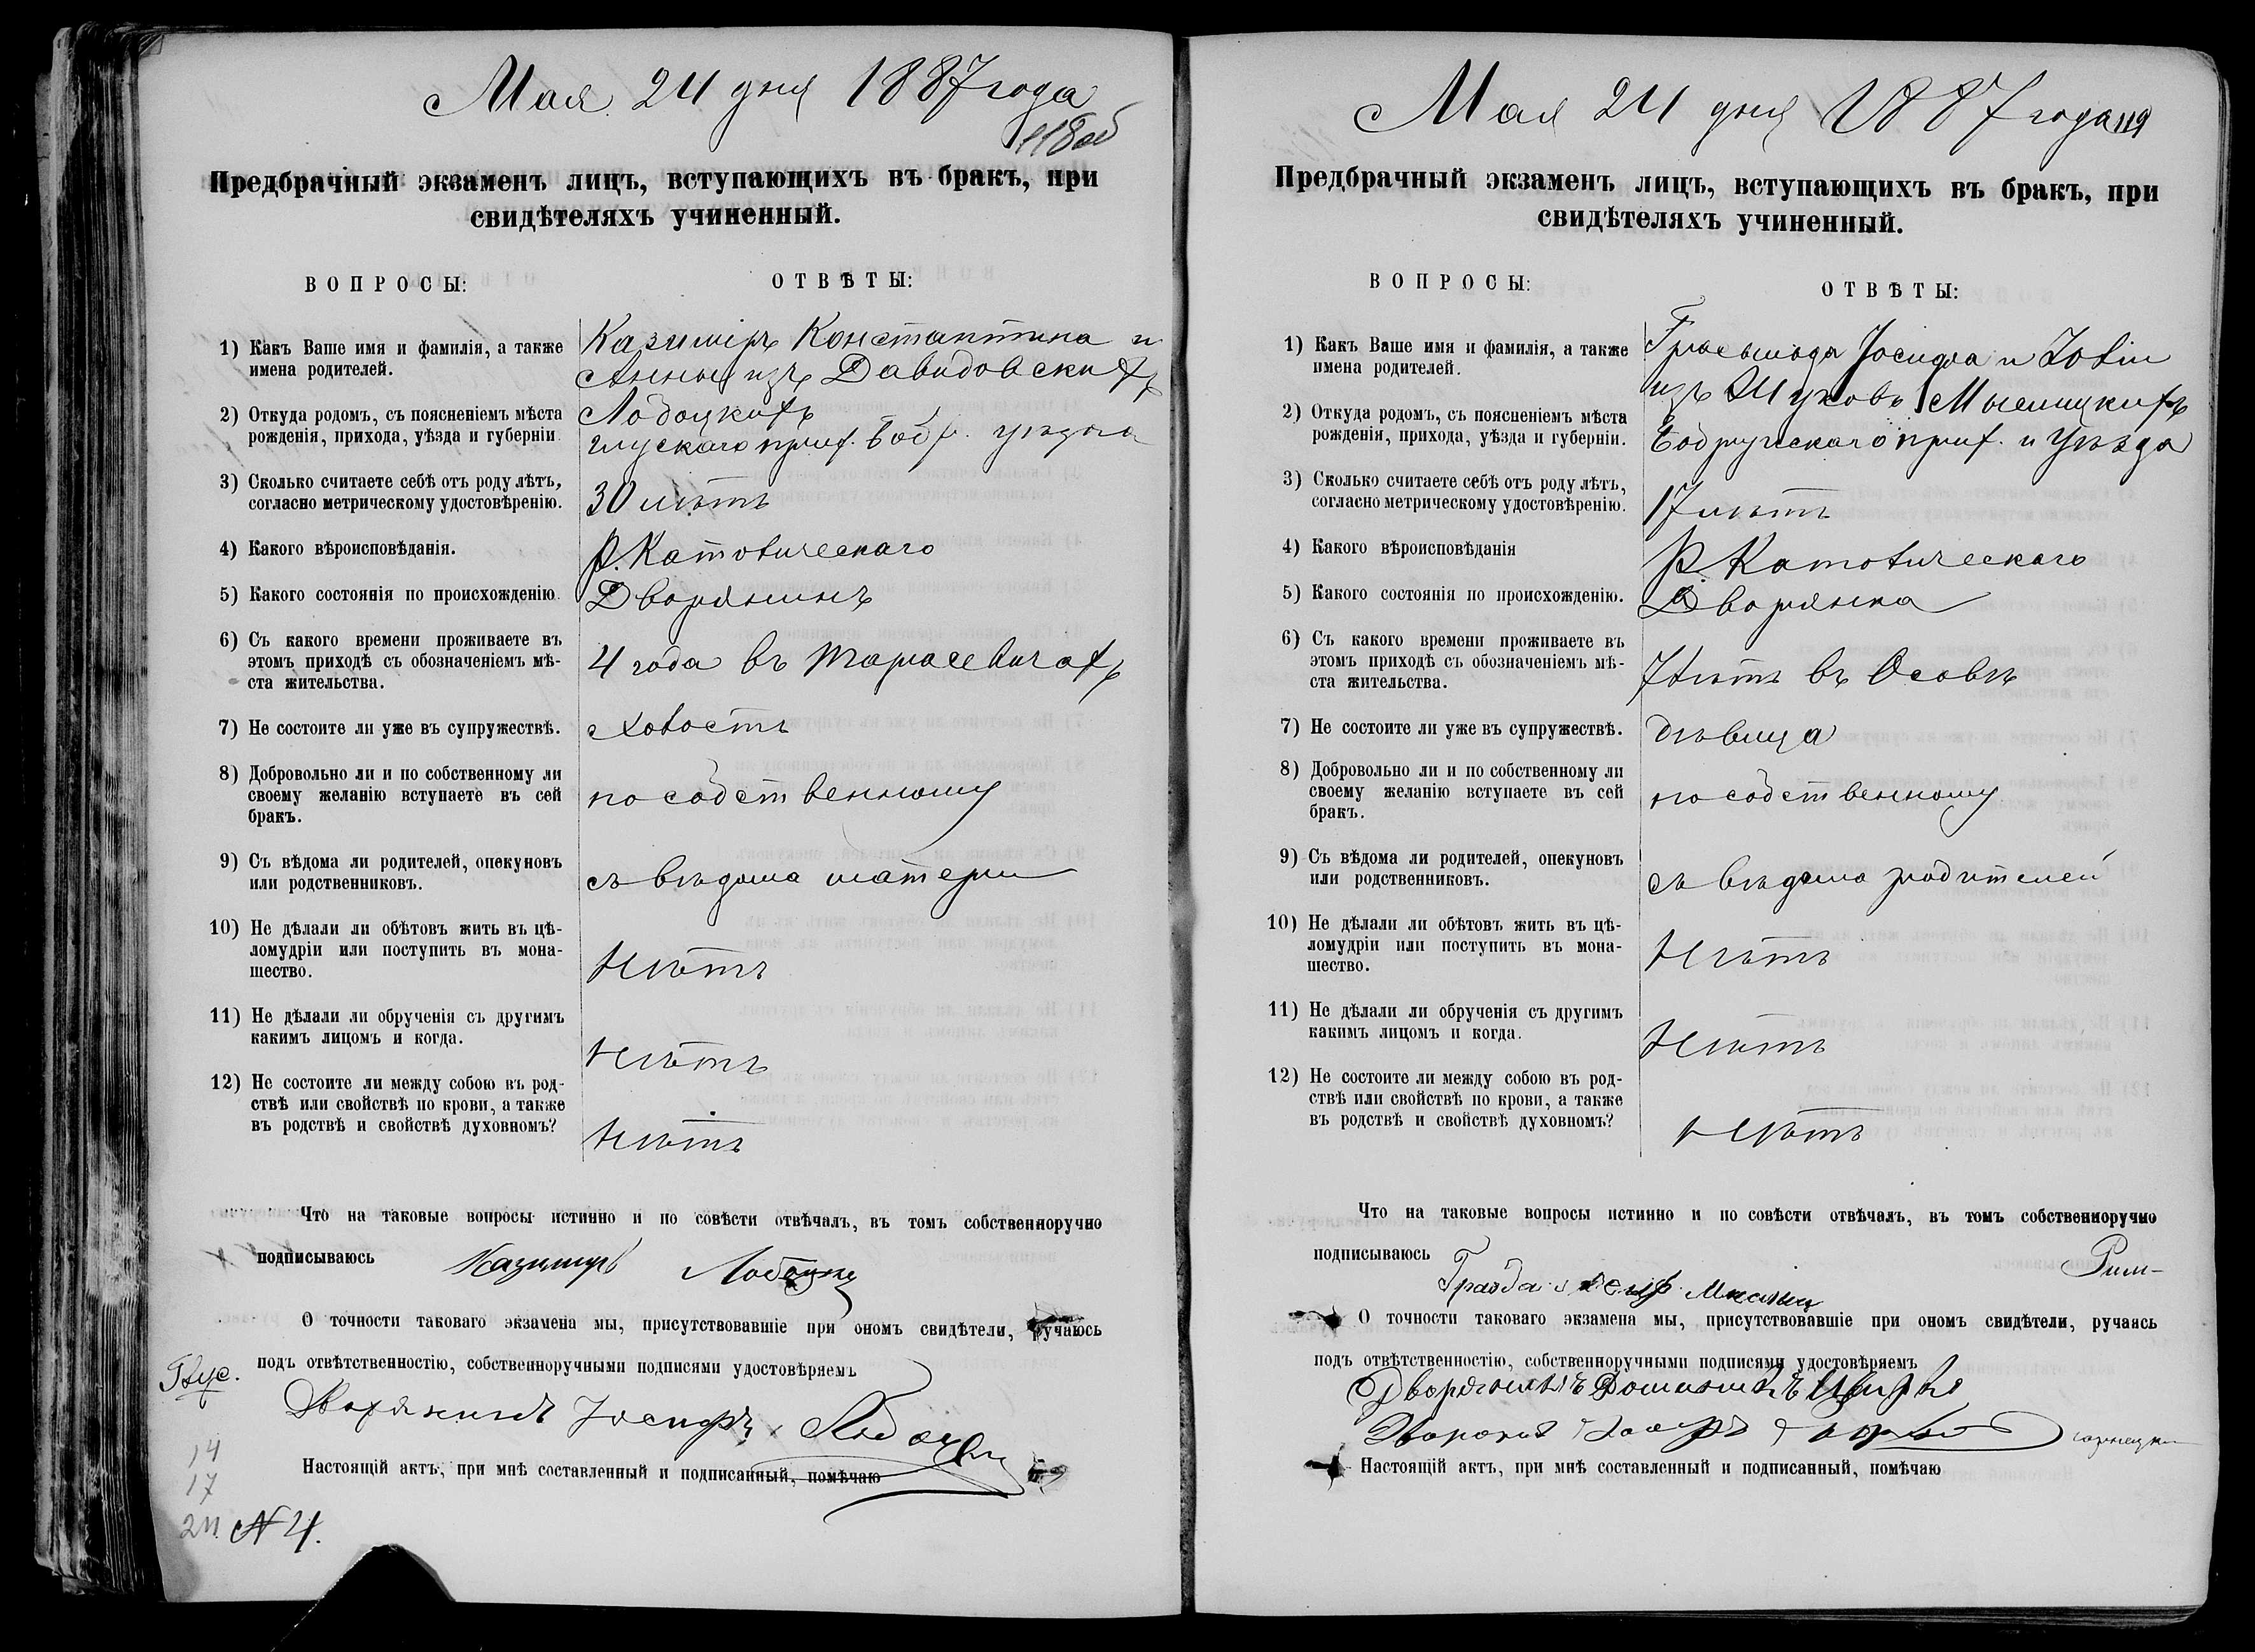 Мая 24 дня 1887 года
118об
Предбрачный экзаменъ лицъ, вступающихъ въ бракъ, при
свидѣтеляхъ учиненный.
ВОПРОСЫ:
ОТВѢТЫ:
1) Какъ Ваше имя и фамилія, а также
имена родителей.
Казимиръ Константина и
Анны изъ Давидовскихъ
Лобоцкихъ
2) Откуда родомъ, съ поясненіемъ мѣста
рожденія, прихода, уѣзда и губерніи.
глускаго прих. Бобр. уѣзда
3) Сколько считаете себѣ отъ роду лѣтъ,
согласно метрическому удостовѣренію.
30 лѣтъ
4) Какого вѣроисповѣданія.
Р. Католическаго
5) Какого состоянія по происхожденію.
Дворянинъ
6) Съ какого времени проживаете въ
этомъ приходѣ съ обозначеніемъ мѣ-
ста жительства.
4 года въ Тарасевичахъ
7) Не состоите ли уже въ супружествѣ.
холостъ
8) Добровольно ли и по собственному ли
своему желанію вступаете въ сей
бракъ.
по собственному
9) Съ вѣдома ли родителей, опекуновъ
или родственниковъ.
съ вѣдома матери
10) Не дѣлали ли обѣтовъ жить въ цѣ-
ломудріи или поступить въ мона-
шество.
Нѣтъ
11) Не дѣлали ли обрученія съ другимъ
какимъ лицомъ и когда.
Нѣтъ
12) Не состоите ли между собою въ род-
ствѣ или свойствѣ по крови, а также
въ родствѣ и свойствѣ духовномъ?
Нѣтъ
Что на таковые вопросы истинно и по совѣсти отвѣчалъ, въ томъ собственноручно
подписываюсь Казимиръ
О точности таковаго экзамена мы, присутствовавшіе при ономъ свидѣтели, ручаюсь
подъ отвѣтственностію, собственноручными подписями удостовѣряемъ
Глус.
Дворянинъ Іосифъ
Настоящій актъ, при мнѣ составленный и подписанный, помѣчаю
14
17
24
N 4.
Мая 24 дня 1887 года
119
Предбрачный экзаменъ лицъ, вступающихъ въ бракъ, при
свидѣтеляхъ учиненный.
ВОПРОСЫ:
ОТВѢТЫ:
1) Какъ Ваше имя и фамилія, а также
имена родителей.
Іосифа и
изъ Жуковъ
2) Откуда родомъ, съ поясненіемъ мѣста
рожденія, прихода, уѣзда и губерніи.
Бобруйскаго прих. и уѣзда
3) Сколько считаете себѣ отъ роду лѣтъ,
согласно метрическому удостовѣренію.
17 лѣтъ
4) Какого вѣроисповѣданія
Р. Католическаго
5) Какого состоянія по происхожденію.
Дворянка
6) Съ какого времени проживаете въ
этомъ приходѣ съ обозначеніемъ мѣ-
ста жительства.
7 лѣтъ въ Осовѣ
7) Не состоите ли уже въ супружествѣ.
дѣвица
8) Добровольно ли и по собственному ли
своему желанію вступаете въ сей
бракъ.
по собственному
9) Съ вѣдома ли родителей, опекуновъ
или родственниковъ.
съ вѣдома родителей
10) Не дѣлали ли обѣтовъ жить въ цѣ-
ломудріи или поступить въ мона-
шество.
Нѣтъ
11) Не дѣлали ли обрученія съ другимъ
какимъ лицомъ и когда.
Нѣтъ
12) Не состоите ли между собою въ род-
ствѣ или свойствѣ по крови, а также
въ родствѣ и свойствѣ духовномъ?
Нѣтъ
Что на таковые вопросы истинно и по совѣсти отвѣчалъ, въ томъ собственноручно
подписываюсь
О точности таковаго экзамена мы, присутствовавшіе при ономъ свидѣтели, ручаясь
подъ отвѣтственностію, собственноручными подписями удостовѣряемъ
Настоящій актъ, при мнѣ составленный и подписанный, помѣчаю